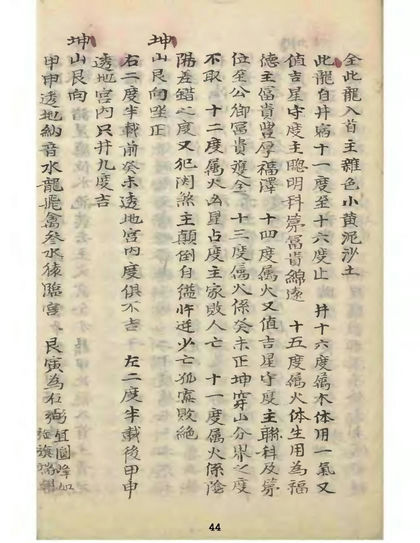 全此龍入首主雜色小黃泥沙土
此龍自井宿十一度至十六度止 井十六度屬木体用一氣又
值吉星守度主聰明科第富貴綿遠 十五度屬火体生用為福
德主富貴豐厚福澤 十四度屬火又值吉星守度主聯科及第
位至公卿富貴雙全 十三度屬火係癸未正坤穿山分界之度
不取 十二度屬火凶星占度主家敗人亡 十一度屬火係陰
陽差錯之度又犯関煞主顛倒自縊少亡孤寡敗絕
坤山艮向坐正
右二度半載前癸未透地宮内度俱不吉 左二度半載後甲申
透地宮内只井九度吉
坤山艮向
甲申透地納音水龍禽參水猿臨宮 艮寅為右
44